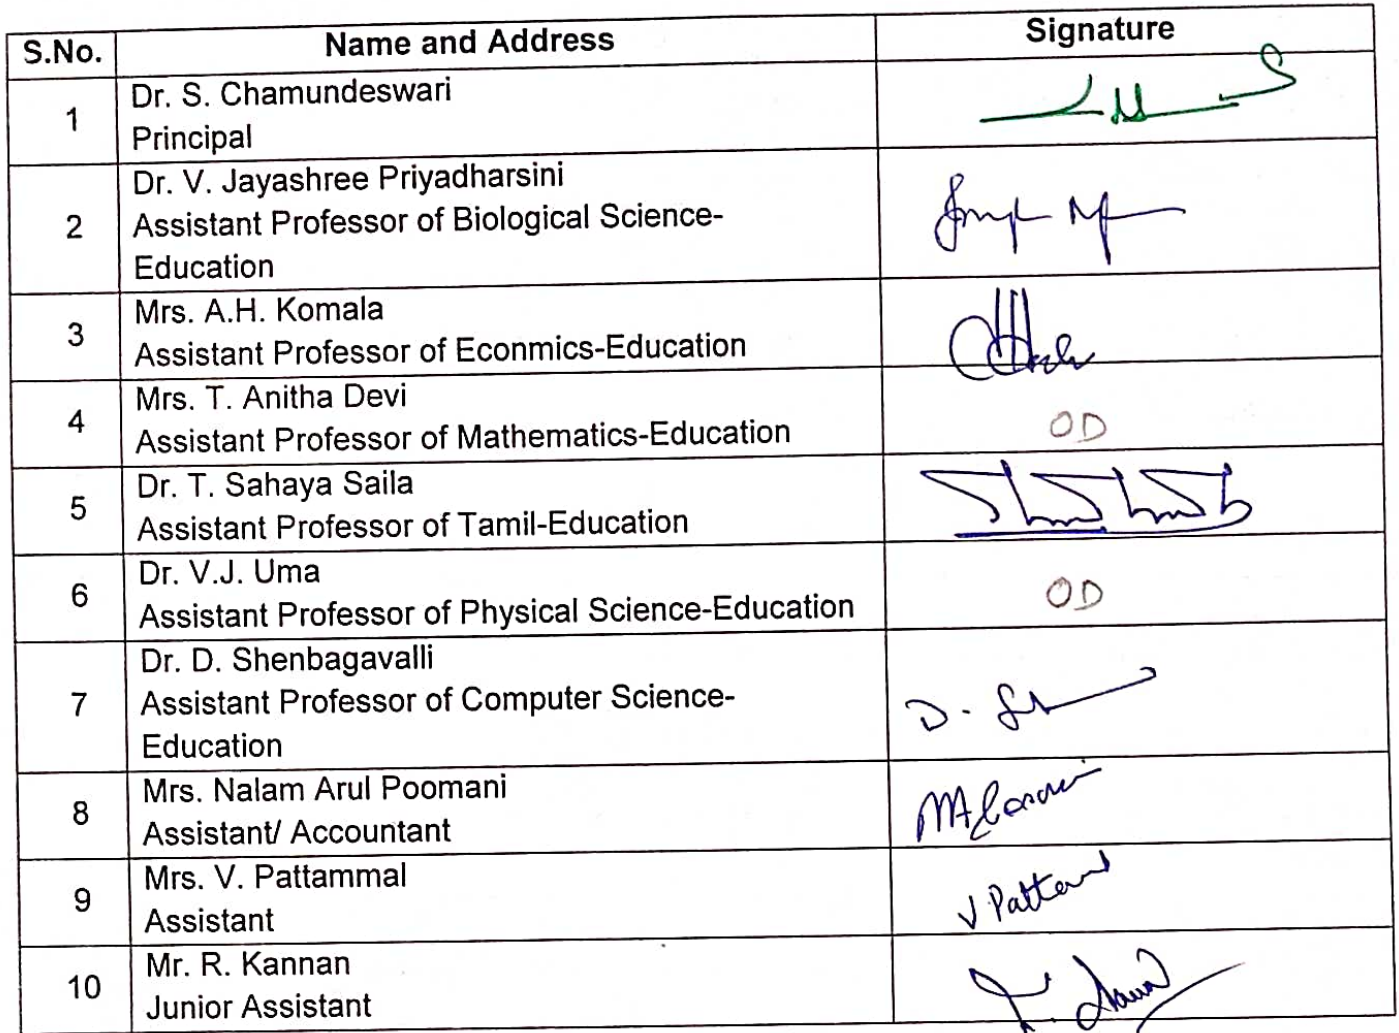 S.No. Name and Address Signature
1 Dr. S. Chamundeswari
Principal
2 Dr. V. Jayashree Priyadharsini
Assistant Professor of Biological Science-
Education
3 Mrs. A.H. Komala
Assistant Professor of Econmics-Education
4 Mrs. T. Anitha Devi
Assistant Professor of Mathematics-Education OD
5 Dr. T. Sahaya Saila
Assistant Professor of Tamil-Education
6 Dr. V.J. Uma
Assistant Professor of Physical Science-Education OD
7 Dr. D. Shenbagavalli
Assistant Professor of Computer Science-
Education D.
8 Mrs. Nalam Arul Poomani
Assistant/ Accountant
9 Mrs. V. Pattammal
Assistant
10 Mr. R. Kannan
Junior Assistant